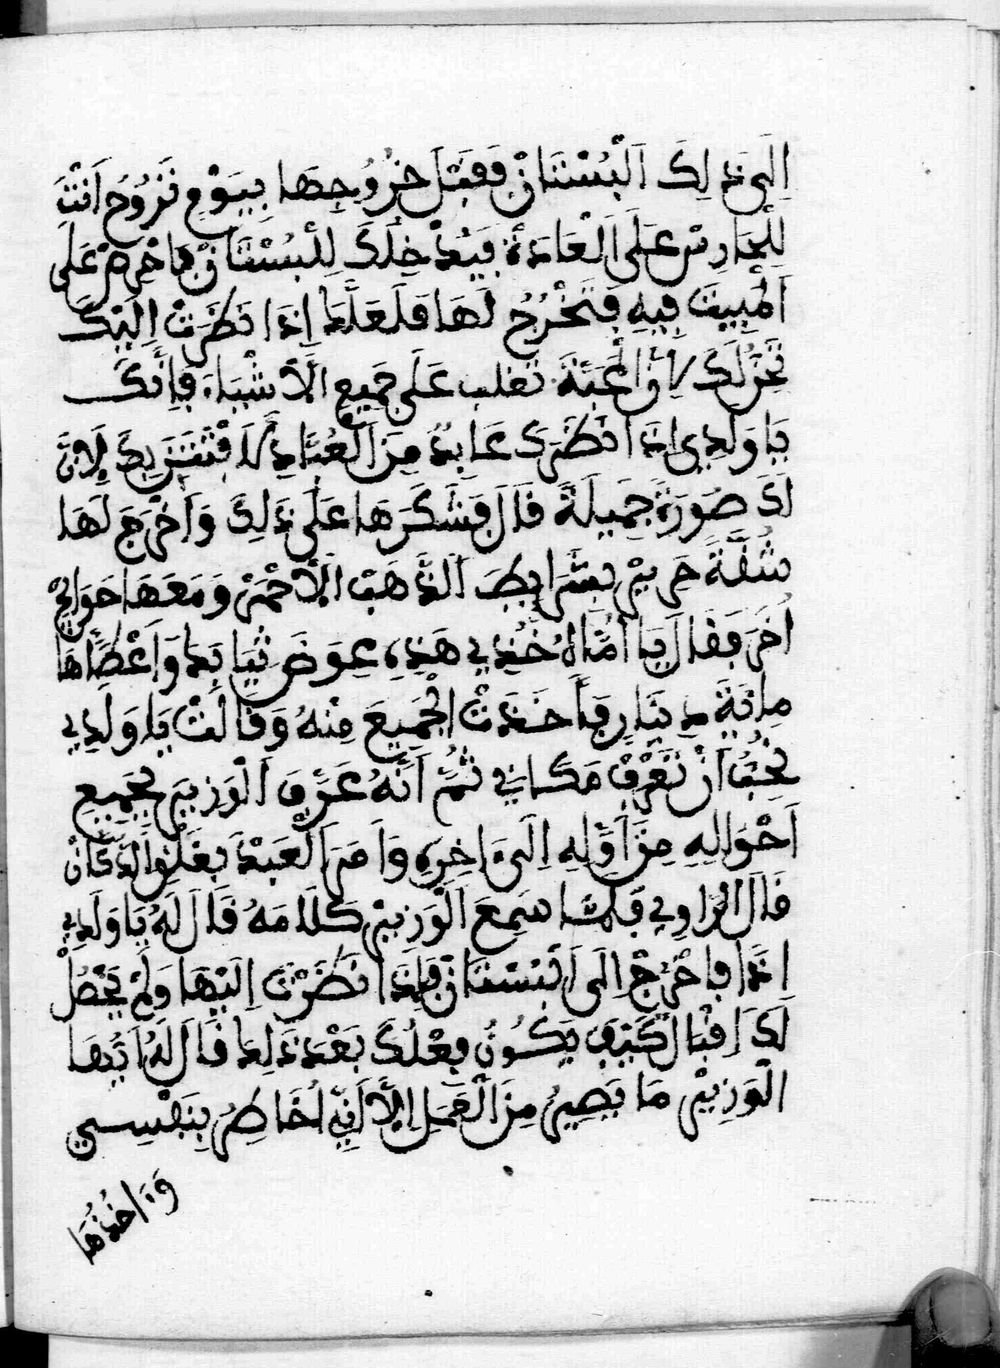 إِلَى ذَلِكَ الْبُسْتَانْ فَقَبْلَ خُرُوجِهَا بِيَوْمٍ تَرُوحُ أَنْتَ
لِلْحَارِسْ عَلَى الْعَادَةِ فَيُدْخِلُكَ لِلْبُسْتَانْ فَاحْرِصْ عَلَى
الْمَبِيتَ فِيهِ فَتَخْرُجُ لَهَا فَلَعَلَّهَا إِذَا نَظَرَتْ إِلَيْكَ
تَحِنُّ لَكَ لِأَنَّ الْمَحَبَّةَ تغلب عَلَى جَمِيعِ الْأَشْيَاءَ فَإِنَّكَ
يَا وَلَدِي إِذَا نَظَرَكَ عَابِدٌ مِنَ الْعُبَّادِ لَافْتَتَنَ بِكَ لِأَنَّ
لَكَ صُورَةً جَمِيلَةً قَالَ فَشَكَرَهَا عَلَى ذَلِكَ وَأَخْرَجَ لَهَا
شُقَّةَ حَرِيرْ بِشَرَايِطِ الذَّهَبْ الْأَحْمَرْ وَمَعَهَا حَوَايِجْ
أُخَرَ فَقَالَ يَا أُمَّاهُ خُذِي هَذِهِ عِوَضَ ثِيَابِكِ وَأَعْطَاهَا
مِائَةَ دِينَارٍ فَأَخَذَتْ الْجَمِيعَ مِنْهُ وَقَالَتْ يَا وَلَدِي
تُحِبُّ أَنْ تَعْرِفْ مَكَانِي ثُمَّ أَنَّهُ عَرَّفَ الْوَزِيرَ بِجَمِيعِ
أَحْوَالِهِ مِنْ أَوَّلِهِ إِلَى ءَاخِرِهِ وَأَمَرَ الْعَبْدَ بِغَلْقِ الدُّكَّانْ
قَالَ الرَّاوِي فَلَمَّا سَمِعَ الْوَزِيرْ كَلَامَهُ قَالَ لَهُ يَا وَلَدِي
إِذَا خَرَجْتَ إِلَى الْبُسْتَانْ فَإِذَا نَظَرْتَ إِلَيْهَا وَلَمْ يَحْصُلْ
لَكَ إِقْبَالْ كَيْفَ يَكُونُ فِعْلُكَ بَعْدَ ذَلِكَ قَالَ لَهُ أَيُّهَا
الْوَزِيرْ مَا بَقِيَ مِنَ الْعَمَلِ إِلَّا أَنِّي أُخَاطِرُ بِنَفْسِي
وَءَاخُذُهَا